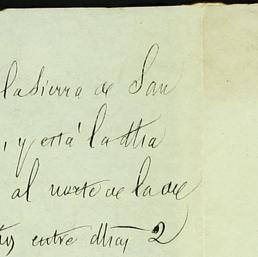 la Sierra de San
, y está la dha
al norte de la de
entre dhas 2